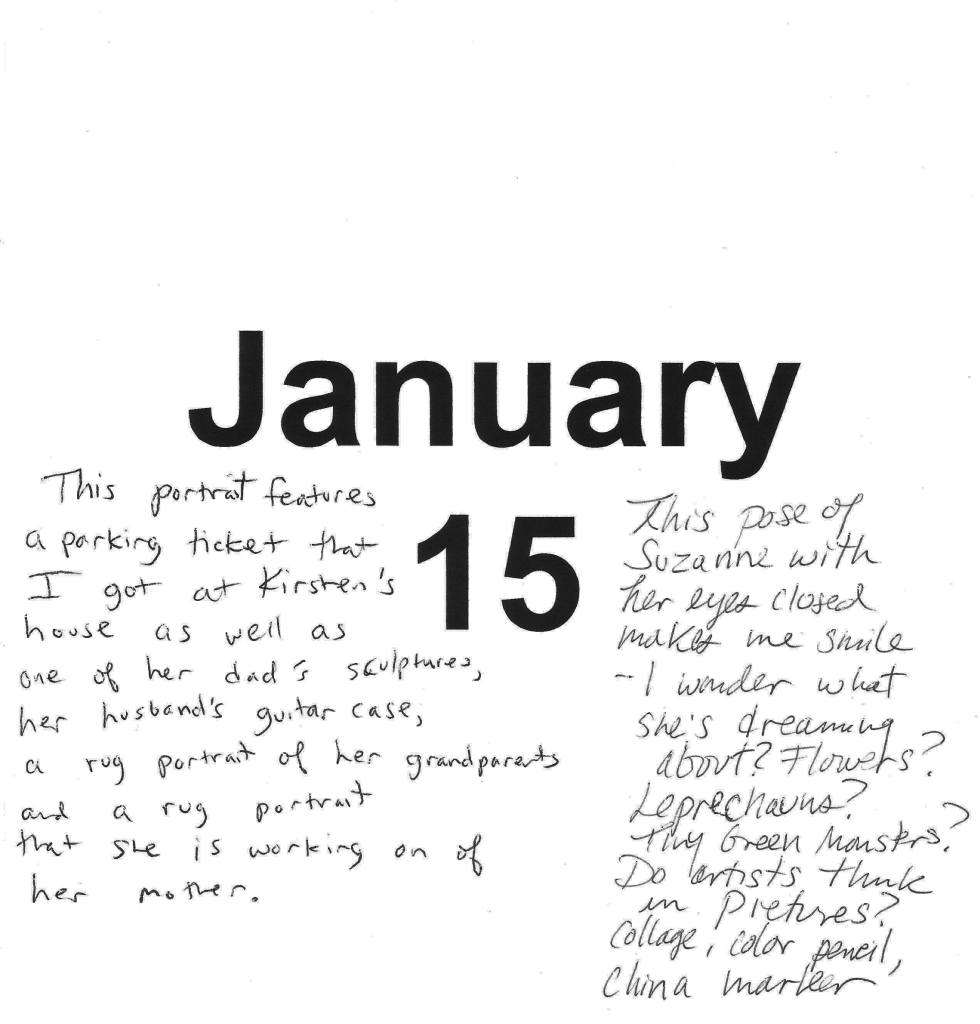 January
15
This portrait features
a parking ticket that
I got at Kirsten's
house as well as
one of her dad's sculptures,
her husband's guitar case,
a rug portrait of her grandparents
and a rug portrait
that she is working on of
her mother.
This pose of
Suzanne with
her eyes closed
makes me smile
- I wonder what
she's dreaming
about? Flowers?
Leprechauns?
Tiny Green Monsters?
Do artists think
in Pictures?
Collage, color pencil,
China marker